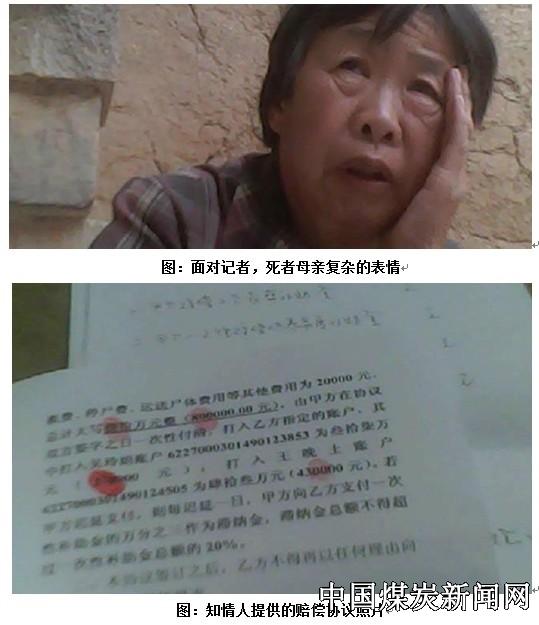 图：面对记者，死者母亲复杂的表情
素费、停尸费、运送尸体费用等其他费用为 20000 元，
总计大写捌拾万元整（800000.00元），由甲方在协议
双方签字之日一次性付清，打入乙方指定的账户，其
中打入吴玲娟账户 6227000301490123853 为叁拾柒万
元（ 0000 元），打入王晚土账户
6227000301490124505 为肆拾叁万元（430000元）。若
甲方迟延支付，则每迟延一日，甲方向乙方支付一次
性补助金的万分之三作为滞纳金，滞纳金总额不得超
过一次性补助金总额的 20%。
本协议签订之后，乙方不得再以任何理由向
中国煤炭新闻网
图：知情人提供的赔偿协议照片